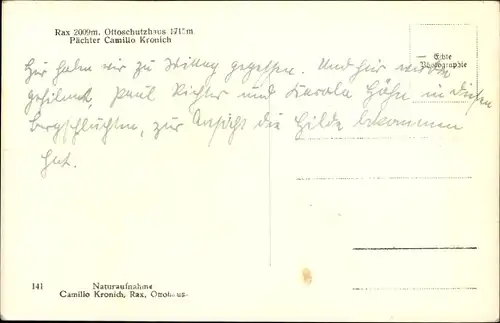 Rax 2009m. Ottoschutzhaus 1715m
Pächter Camillo Kronich
Echte
Photographie
Hier haben wir zu Mittag gegessen. Und hier wurde
gefilmt, Paul Richter und Karola Höhn in diesen
Bergschluchten, zur Ansicht die Hilde bekommen
hat.
141
Naturaufnahme
Camillo Kronich, Rax, Ottohaus